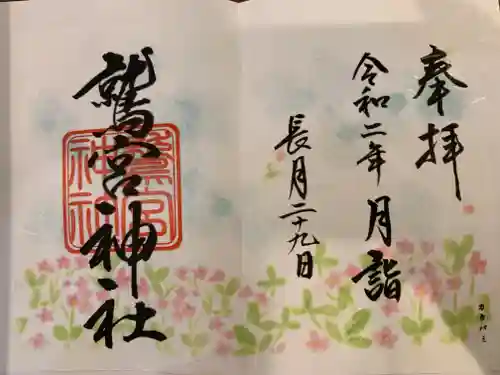 奉拝
令和二年 月詣
長月二十九日
鷲宮神社
鷲宮
神社